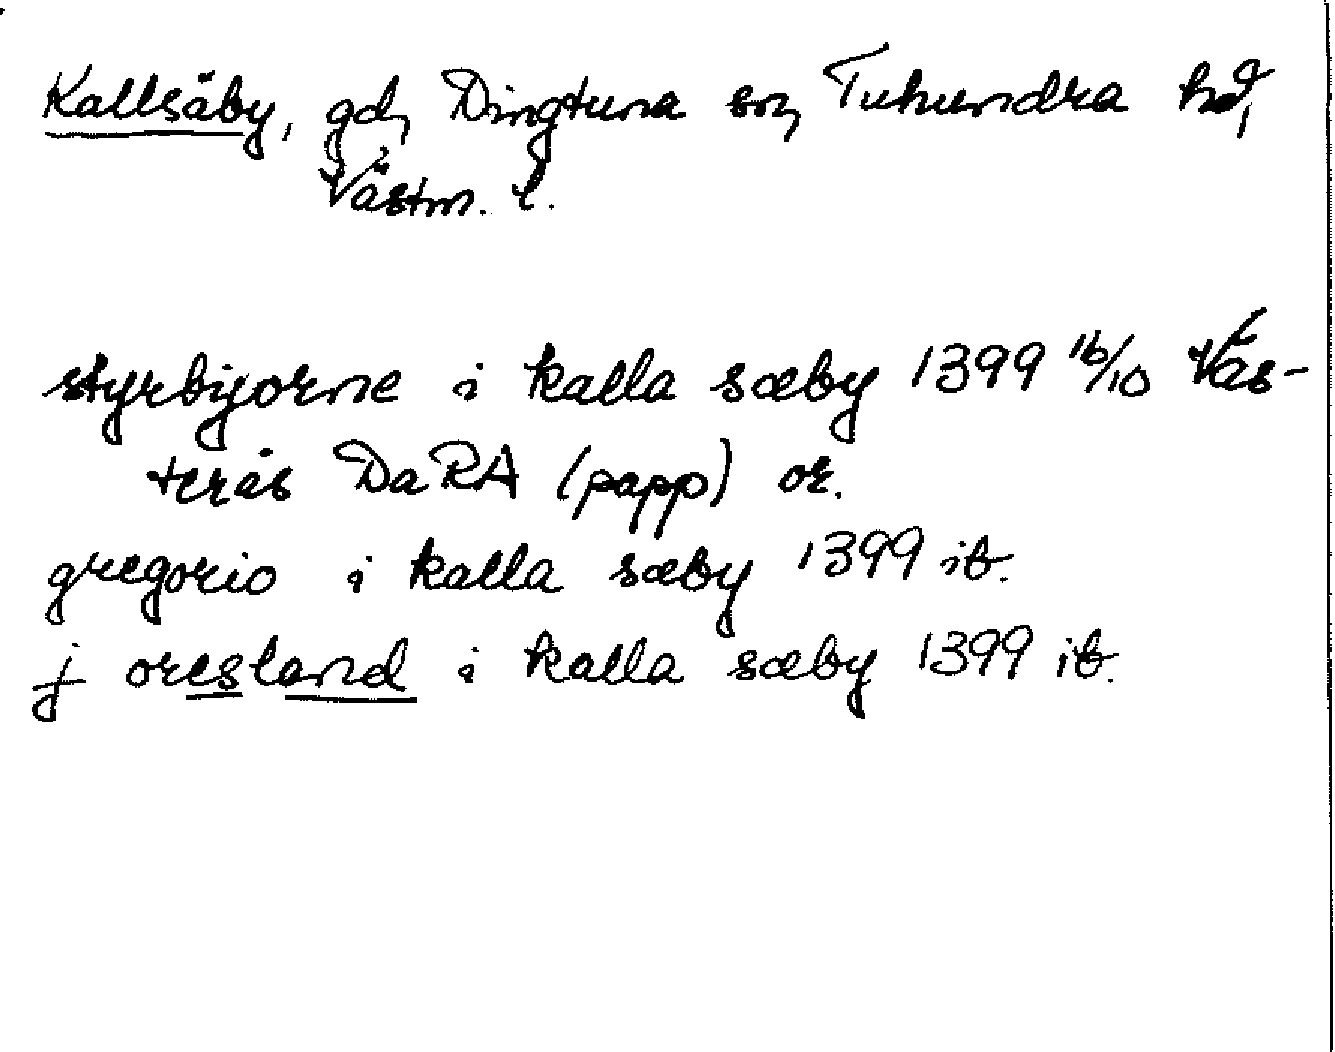 Kallsäby, gd, Dingtuna sn, Tuhundra hd,
Västm. l.
styrbijorne i kalla sæby 1399 16/10 Väs-
terås DaRA (papp) or.
gregorio i kalla sæby 1399 ib.
j oresland i kalla sæby 1399 ib.